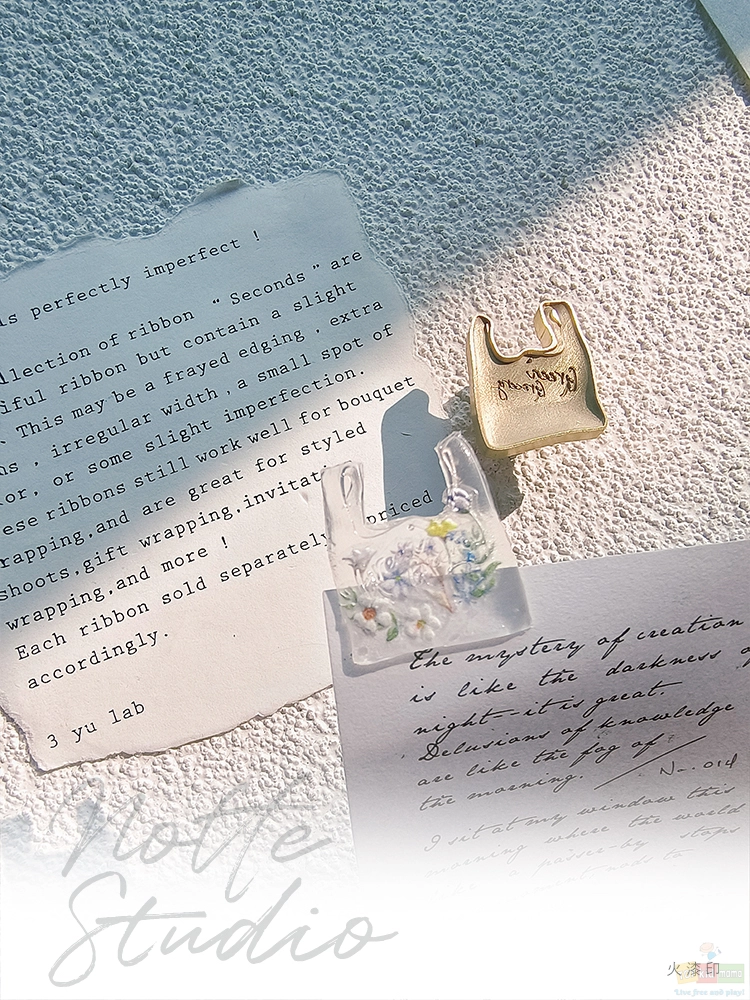 is perfectly imperfect !
llection of ribbon “ Seconds ” are
iful ribbon but contain a slight
. This may be a frayed edging , extra
ns , irregular width , a small spot of
or, or some slight imperfection.
ese ribbons still work well for bouquet
rapping,and are great for styled
shoots,gift wrapping,invitat
wrapping,and more ! priced
Each ribbon sold separately
accordingly.
3 yu lab
Green
The mystery of creation
is like the darkness o
night--it is great.
Delusions of knowledge
are like the fog of
the morning.
No. 014
I sit at my window this
morning where the world
like a passer-by stops
moment nods to
Notte
Studio
火漆印
mama
Live free and play!